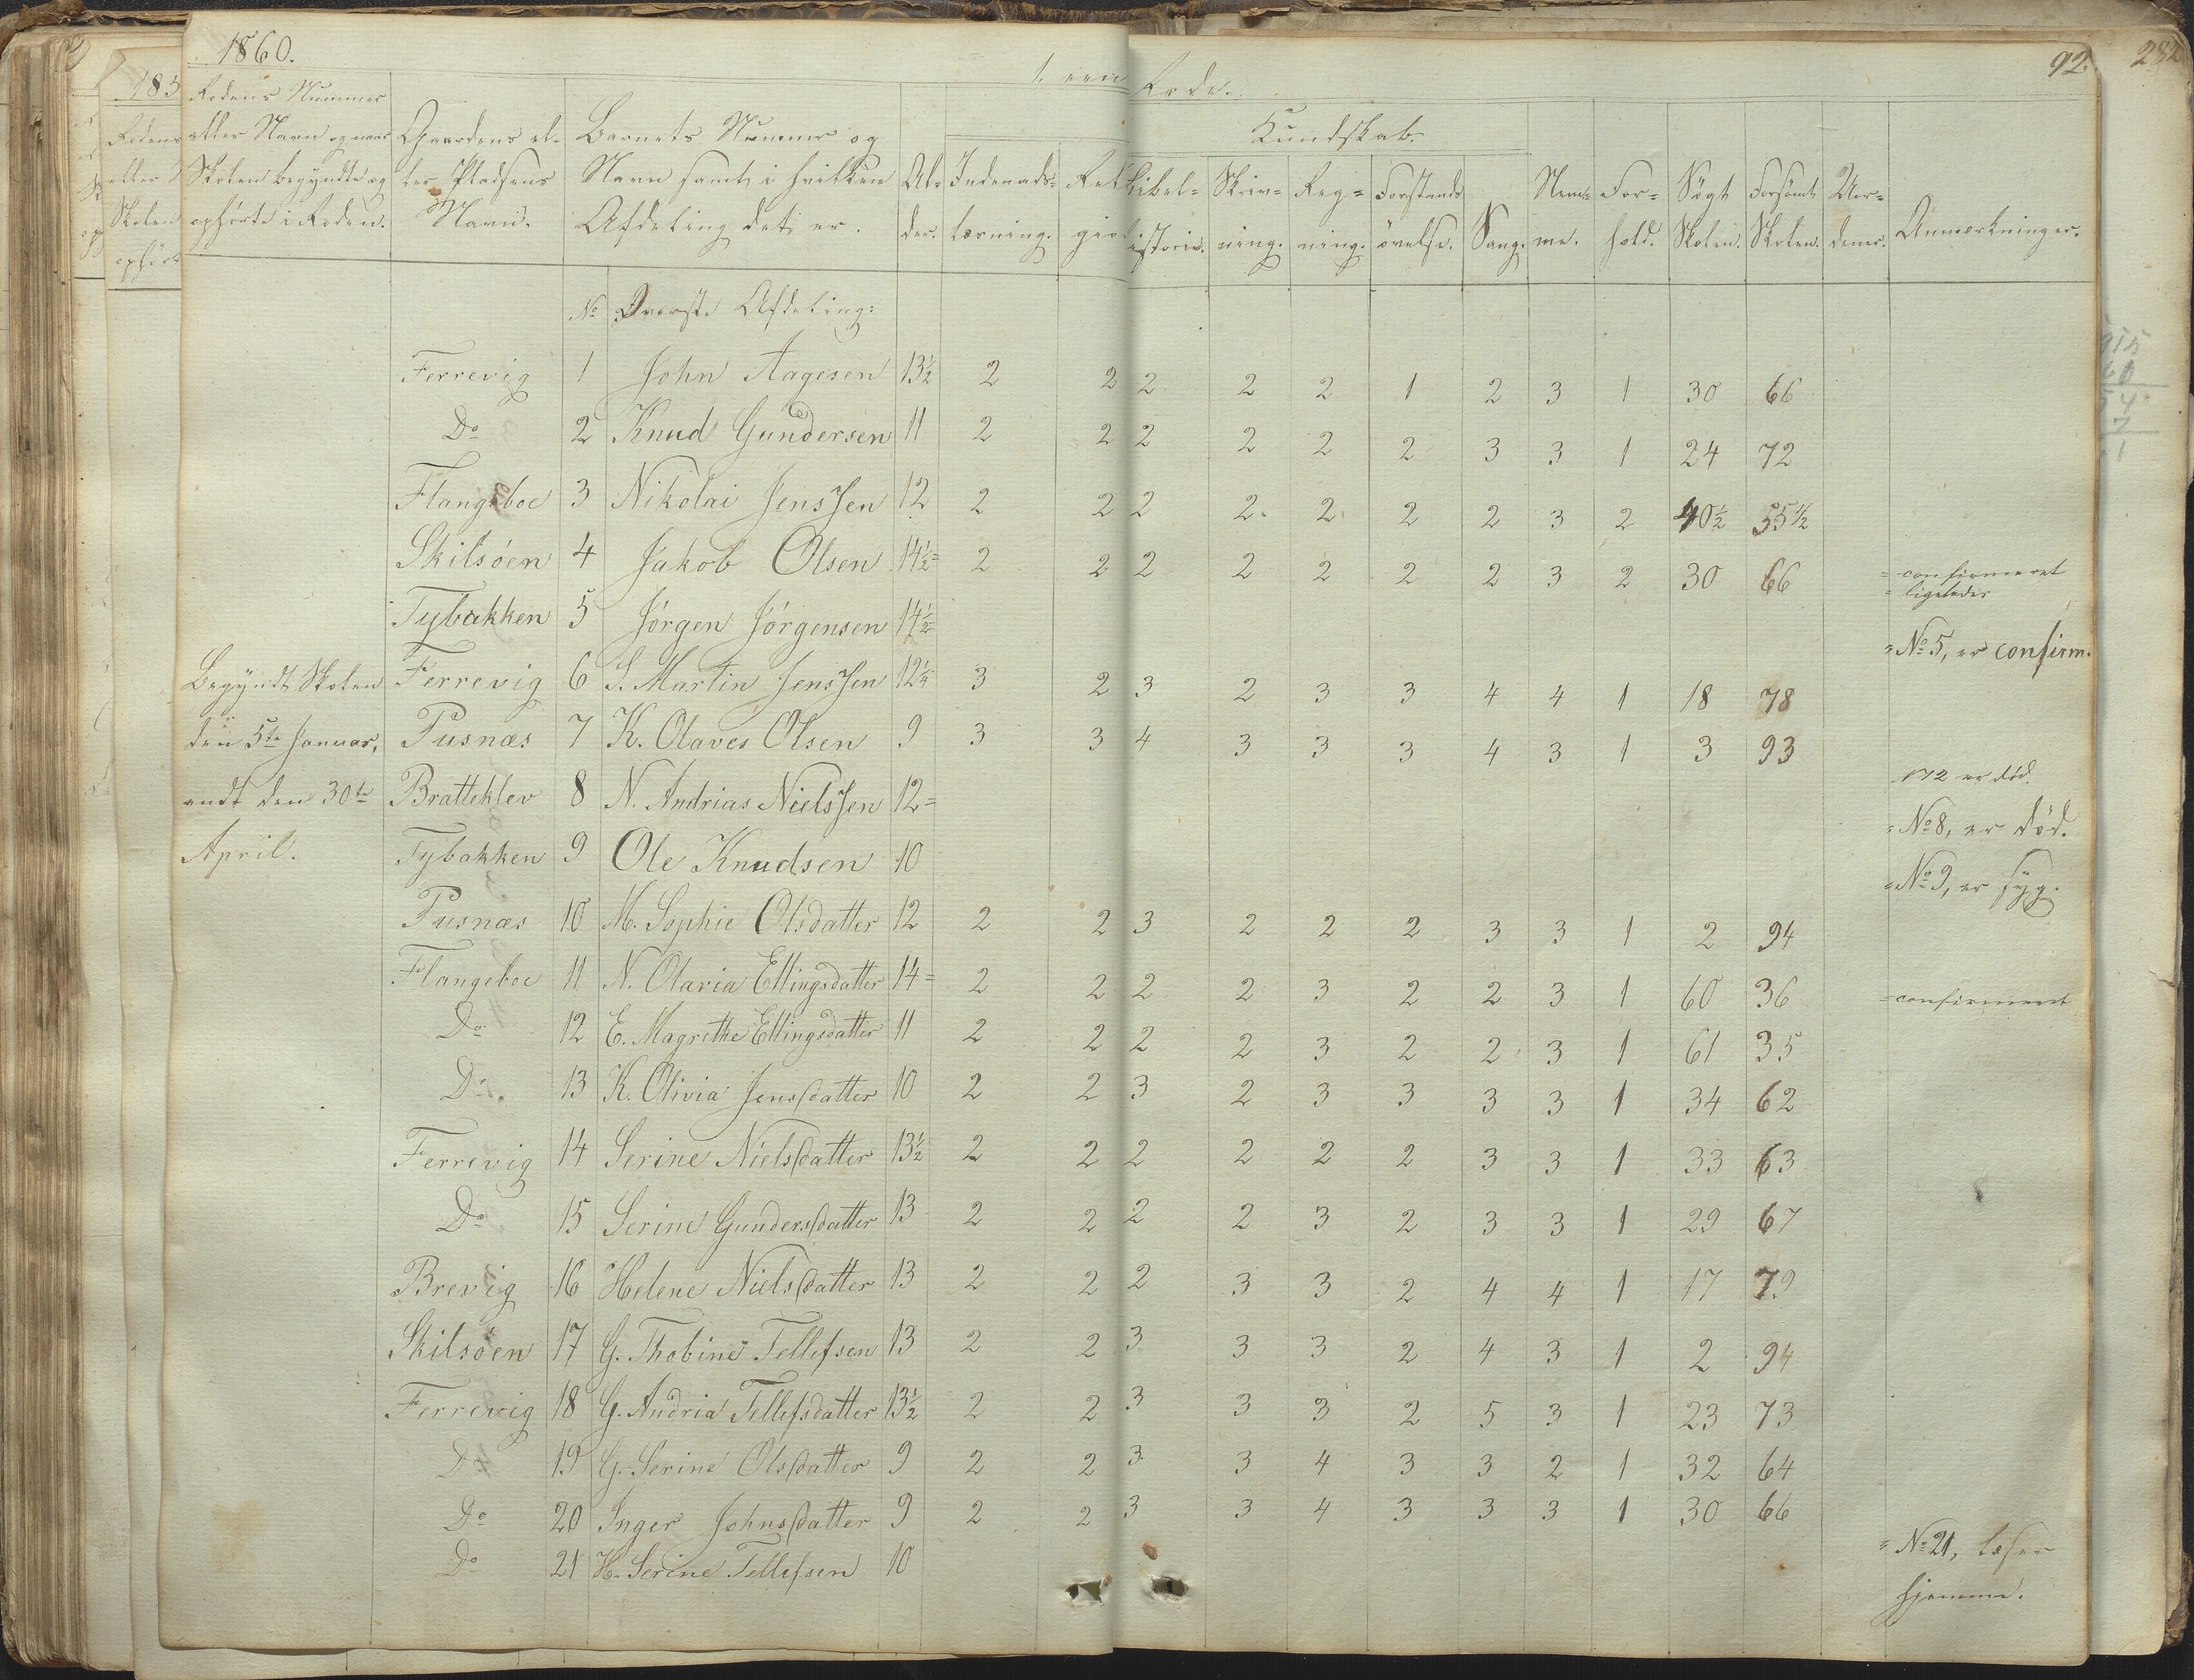 1860.
1. een Rode.
92.
282
183
Rodens Nummer
eller Navn og naar
Skolen begyndte og
ophørte i Roden.
Gaardens el-
ler Pladsens
Navn.
Barnets Nummer og
Navn samt i hvilken
Afdeling det er.
Al-
der.
Kundskab.
Indenads-
læsning.
Reli
gion
Bibel-
istorie.
Skriv-
ning.
Reg-
ning.
Forstands
øvelse.
Sang.
Nem-
me.
For-
hold.
Søgt
Skolen.
Forsømt
Skolen.
Anmærkninger.
No Øverste Afdeling:
Ferrevig 1 John Aagesen 13½ 2 2 2 2 2 1 2 3 1 30 66
Do 2 Knud Gundersen 11 2 2 2 2 2 2 3 3 1 24 72
Flangeboe 3 Nikolai Jenssen 12 2 2 2 2 2 2 2 3 2 40½ 55½
Skilsöen 4 Jakob Olsen 14½= 2 2 2 2 2 2 2 3 2 30 66 = confirmeret
= ligeledes
Tybakken 5 Jörgen Jörgensen 14½ = No 5, er confirm.
Begyndt Skolen
den 5te Januar,
endt den 30te
April.
Ferrevig 6 S. Martin Jenssen 12¼ 3 2 3 2 3 3 4 4 1 18 78
Pusnæs 7 K. Olaves Olsen 9 3 3 4 3 3 3 4 3 1 3 93
er död.
Bratteklev 8 N. Andrias Nielssen 12= = No 8, er död.
Tybakken 9 Ole Knudsen 10 = No 9, er syg.
Pusnæs 10 M. Sophie Olsdatter 12 2 2 3 2 2 2 3 3 1 2 94
Flangeboe 11 N. Olavia Ellingsdatter 14= 2 2 2 2 3 2 2 3 1 60 36 = confirmeret
Do 12 E. Magrethe Ellingsdatter 11 2 2 2 2 3 2 2 3 1 61 35
Do 13 K. Olivia Jensdatter 10 2 2 3 2 3 3 3 3 1 34 62
Ferrevig 14 Serine Nielsdatter 13½ 2 2 2 2 2 2 3 3 1 33 63
Do 15 Serine Gundersdatter 13 2 2 2 2 3 2 3 3 1 29 67
Brevig 16 Helene Nielsdatter 13 2 2 2 3 3 2 4 4 1 17 79
Skilsöen 17 G. Thobine Tellefsen 13 2 2 3 3 3 2 4 3 1 2 94
Ferrevig 18 G. Andria Tellefsdatter 13½ 2 2 3 3 3 2 5 3 1 23 73
Do 19 G. Serine Olsdatter 9 2 2 3 3 4 3 3 2 1 32 64
Do 20 Inger Johnsdatter 9 2 2 3 3 4 3 3 3 1 30 66
Do 21 H. Serine Tellefsen 10 = No 21, læser
hjemme.